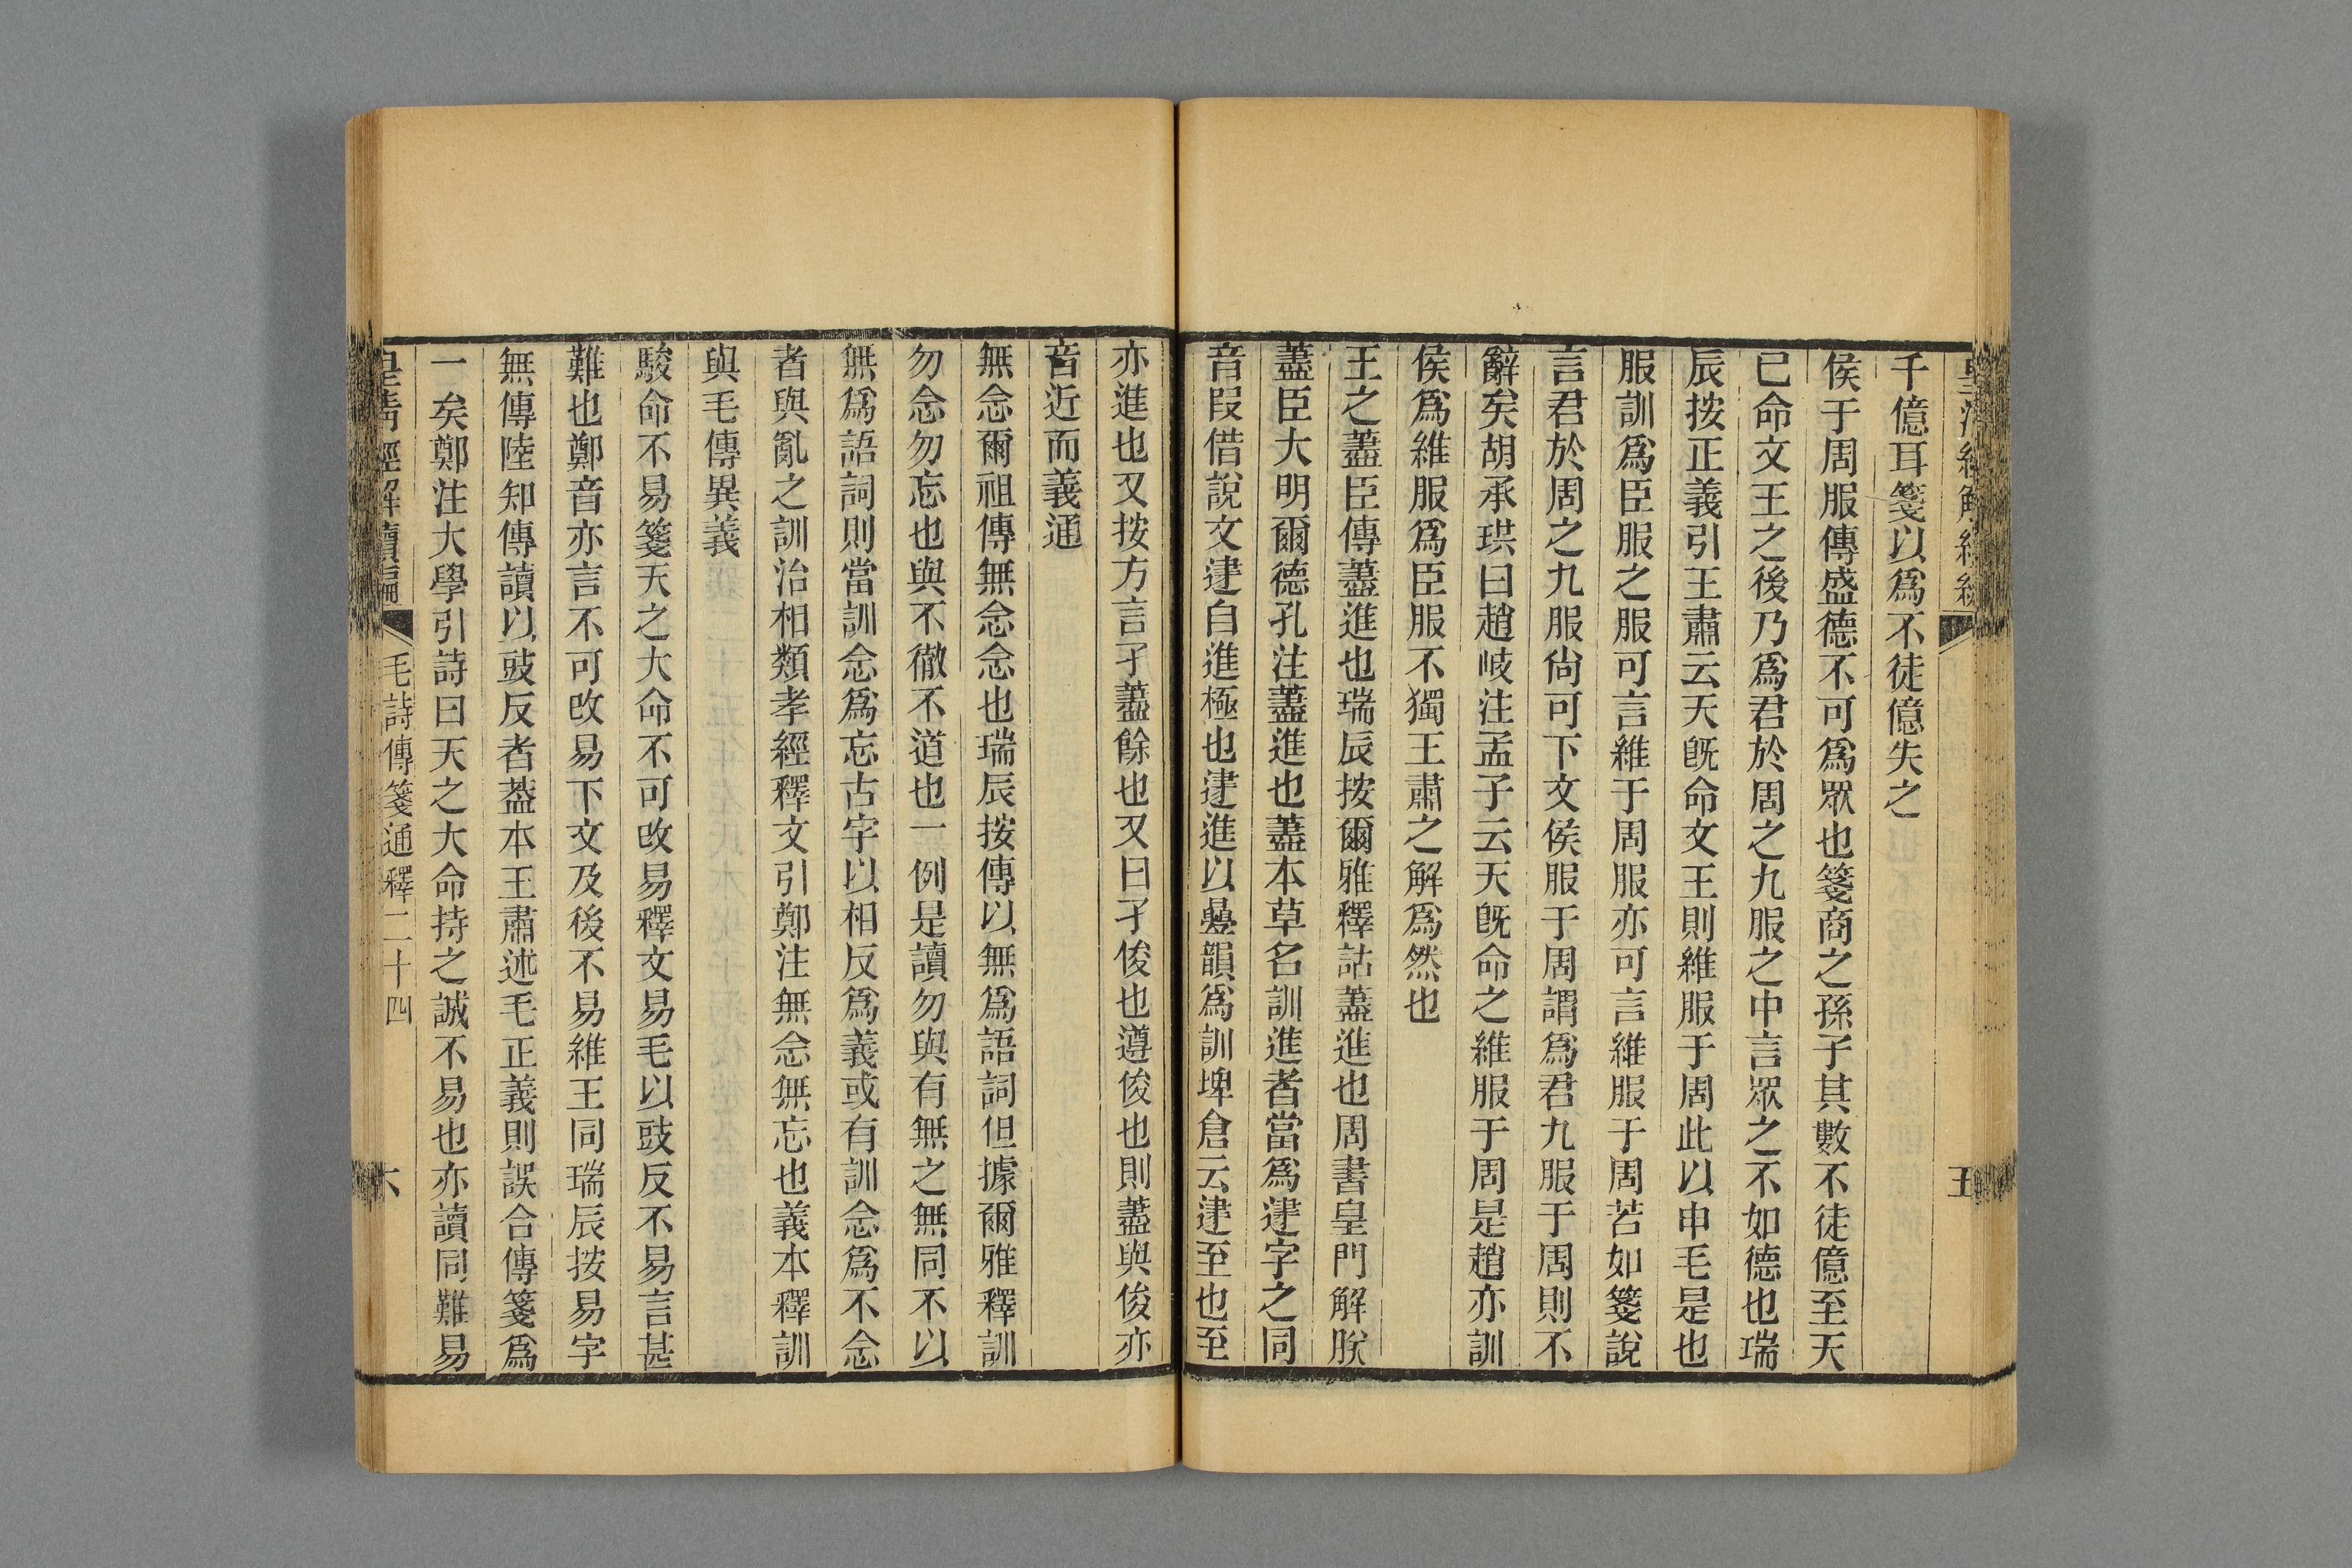 千億耳箋以爲不徒億失之
侯于周服傳盛德不可爲眾也箋商之孫子其數不徒億至天
已命文王之後乃爲君於周之九服之中言眾之不如德也瑞
辰按正義引王肅云天旣命文王則維服于周此以申毛是也
服訓爲臣服之服可言維于周服亦可言維服于周若如箋說
言君於周之九服尙可下文侯服于周謂爲君九服于周則不
辭矣胡承珙曰趙岐注孟子云天旣命之維服于周是趙亦訓
侯爲維服爲臣服不獨王肅之解爲然也
王之藎臣傳藎進也瑞辰按爾雅釋詁藎進也周書皇門解朕
藎臣大明爾德孔注藎進也藎本草名訓進者當爲𦘔字之同
音叚借說文𦘔自進極也𦘔進以疊韻爲訓埤倉云𦘔至也至
亦進也又按方言孑藎餘也又曰孑俊也遵俊也則藎與俊亦
音近而義通
無念爾祖傳無念念也瑞辰按傳以無爲語詞但據爾雅釋訓
勿念勿忘也與不徹不道也一例是讀勿與有無之無同不以
無爲語詞則當訓念爲忘古字以相反爲義或有訓念爲不念
者與亂之訓治相類孝經釋文引鄭注無念無忘也義本釋訓
與毛傳異義
駿命不易箋天之大命不可改易釋文易毛以豉反不易言甚
難也鄭音亦言不可改易下文及後不易維王同瑞辰按易字
無傳陸知傳讀以豉反者葢本王肅述毛正義則誤合傳箋爲
一矣鄭注大學引詩曰天之大命持之誠不易也亦讀同難易
皇清經解續編
毛詩傳箋通釋二十四
六